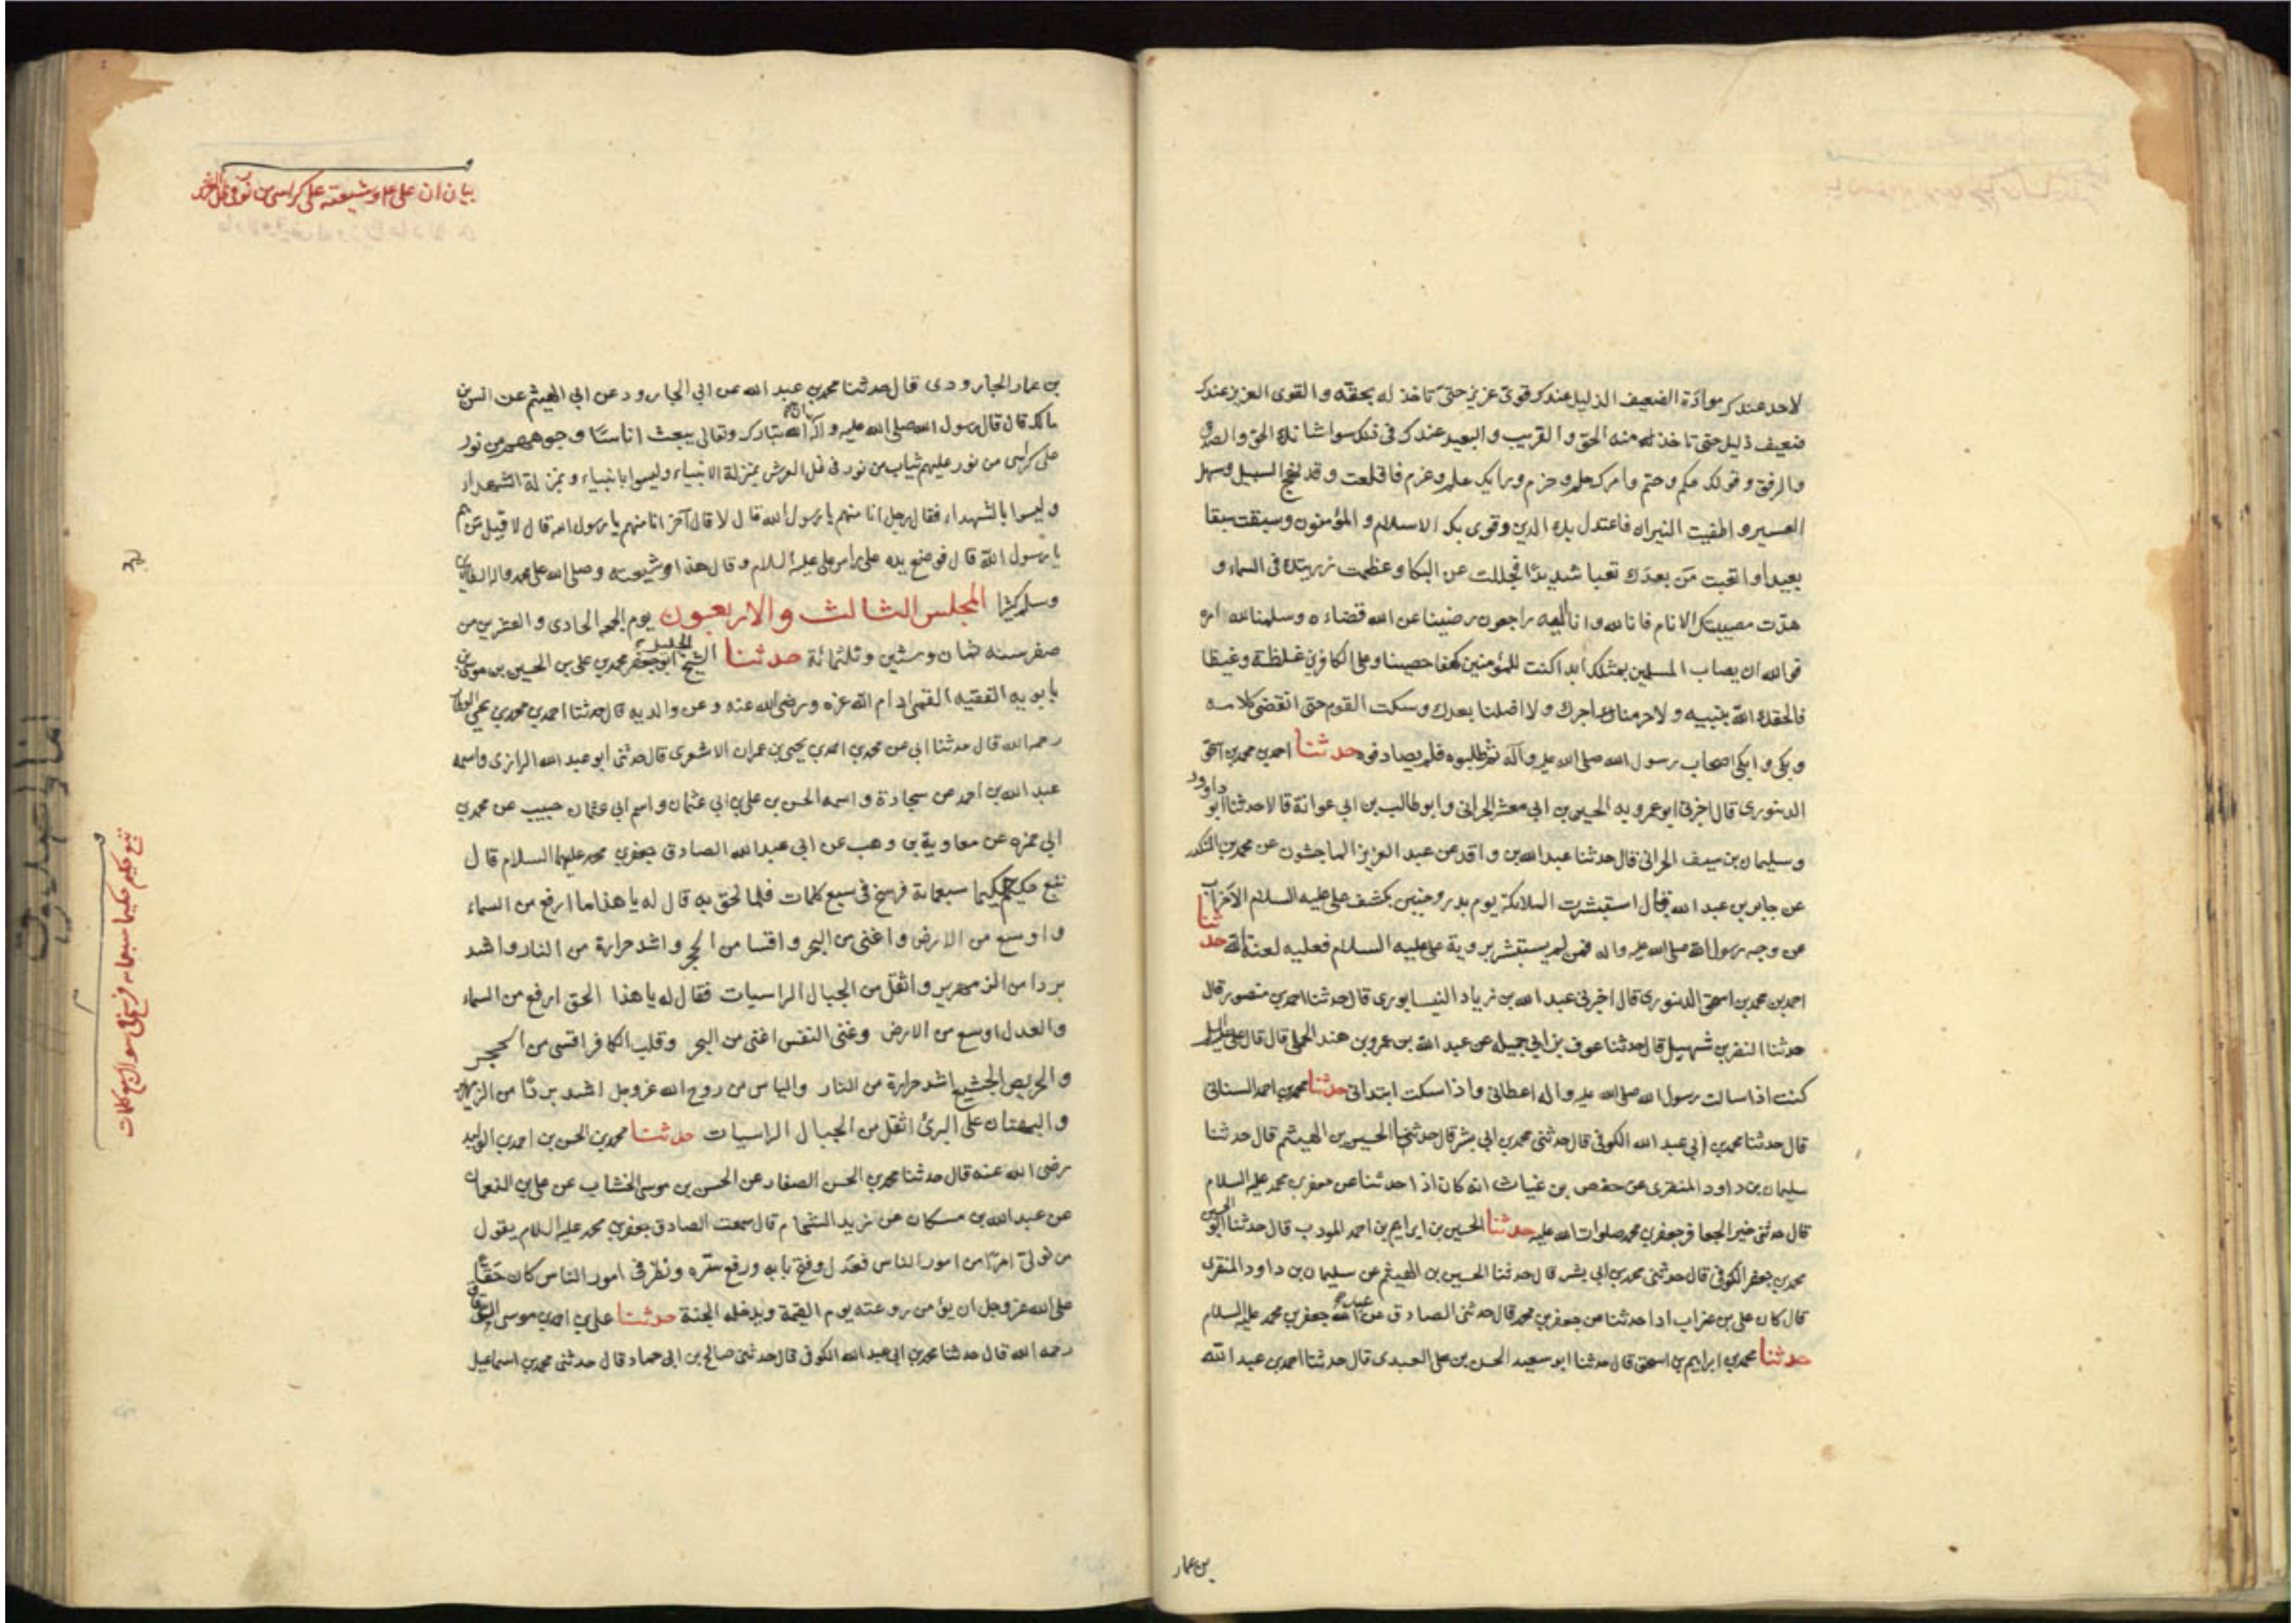 لاحد عندك موادة الضعيف الذليل عندك قوى عزيز حتى تاخذ له بحقه و القوى العزيز عندك
ضعيف ذليل حتى تاخذ منه الحق و القريب و البعيد عندك فى ذلك سوا شانك الحق و الصدق
والرفق و قولك حكم و حتم و امرك حلم و حزم و رايك علم و عزم فاقلعت و قد نهج السبيل و سهل
العسير و اطفيت النيران فاعتدل بك الدين وقوى بك الاسلام و المؤمنون و سبقت سبقا
بعيدا و اتعبت من بعدك تعبا شديدا فجللت عن البكا و عظمت رزيتك فى السماء و
هدّت مصيبتك الانام فانا لله و انا اليه راجعون رضينا عن الله قضاءه و سلمنا لله امره
فوالله ان يصاب المسلمين بمثلك ابدا كنت للمؤمنين كهفا حصينا و على الكافرين غلظة و غيظا
فالحقك الله بنبيه و لا حرمنا اجرك ولا اضلنا بعدك و سكت القوم حتى انقضى كلامه
و بكى و ابكى اصحاب رسول الله صلى الله عليه و آله ثم طلبوه فلم يصادفوه حدثنا احمد بن محمد بن اسحق
الدينورى قال اخبرنى ابو عروبه الحسين بن ابى معشر الحرانى و ابو طالب بن ابى عوانة قالا حدثنا ابو داود
و سليمان بن سيف الحرانى قال حدثنا عبد الله بن واقد عن عبد العزيز الماجشون عن محمد بن المنكدر
عن جابر بن عبد الله قال استبشرت الملائكة يوم بدر و حنين بكشف على عليه السلام الاحزاب
عن وجه رسول الله صلى الله عليه و اله فمن لم يستبشر بروية على عليه السلام فعليه لعنة الله حدثنا
احمد بن محمد بن اسحق الدينورى قال اخبرنى عبد الله بن زياد النيسابورى قال حدثنا احمد بن منصور قال
حدثنا النضر بن شهيل قال حدثنا عوف بن ابى جميله عن عبد الله بن عمرو بن هند الجملى قال قال على
كنت اذا سالت رسول الله صلى الله عليه و اله اعطانى و اذا سكت ابتدانى حدثنا محمد بن احمد السنانى
قال حدثنا محمد بن ابى عبد الله الكوفى قال حدثنى محمد بن ابى بشر قال حدثنى الحسين بن الهيثم قال حدثنا
سليمان بن داود المنقرى عن حفص بن غياث انه كان اذا حدثنا عن جعفر بن محمد عليه السلام
قال حدثنى خير الجعافر جعفر بن محمد صلوات الله عليه حدثنا الحسين بن ابراهيم بن احمد المودب قال حدثنا ابو الحسين
محمد بن جعفر الكوفى قال حدثنى محمد بن ابى بشر قال حدثنا الحسين بن الهيثم عن سليمان بن داود المنقرى
قال كان على بن غراب اذا حدثنا عن جعفر بن محمد قال حدثنى الصادق عن الله جعفر بن محمد عليه السلام
حدثنا محمد بن ابراهيم بن اسحق قال حدثنا ابو سعيد الحسن بن على العبدى قال حدثنا احمد بن عبد الله
بن عمار
بيان ان على و شيعته على كراسى من نور
بن عمار الجارودى قال حدثنا محمد بن عبد الله عن ابى الجارود عن ابى الهيثم عن انس بن
مالك قال قال رسول الله صلى الله عليه و آله ان الله تبارك و تعالى يبعث اناسا وجوههم من نور
على كراسى من نور عليهم ثياب من نور فى ظل العرش بمنزلة الانبياء و ليسوا بانبياء و بمنزلة الشهداء
و ليسوا بالشهداء فقال رجل انا منهم يا رسول الله قال لا قال آخر انا منهم يا رسول الله قال لا قيل من هم
يا رسول الله قال فوضع يده على راس على عليه السلام و قال هذا و شيعته و صلى الله على محمد و اله الطاهرين
و سلم كثيرا المجلس الثالث والاربعون يوم الجمعه الحادى و العشرين من
صفر سنه ثمان و ستين و ثلثمائة حدثنا الشيخ الجليل ابو جعفر محمد بن على بن الحسين بن موسى بن
بابويه الفقيه القمى ادام الله عزه و رضى الله عنه و عن والديه قال حدثنا احمد بن محمد بن يحيى العطار
رحمه الله قال حدثنا ابى عن محمد بن احمد بن يحيى بن عمران الاشعرى قال حدثنى ابو عبد الله الرازى و اسمه
عبد الله بن احمد عن سجادة و اسمه الحسن بن على بن ابى عثمان و اسم ابى عثمان حبيب عن محمد بن
ابى حمزه عن معاوية بن وهب عن ابى عبد الله الصادق جعفر بن محمد عليهما السلام قال
تبع حكيم حكيما سبعمائة فرسخ فى سبع كلمات فلما لحق به قال له يا هذا ما ارفع من السماء
و اوسع من الارض و اغنى من البحر و اقسا من الحجر و اشد حرارة من النار و اشد
بردا من الزمهرير و اثقل من الجبال الراسيات فقال له يا هذا الحق ارفع من السماء
و العدل اوسع من الارض و غنى النفس اغنى من البحر و قلب الكافر اقسى من الحجر
و الحريص الجشع اشد حرارة من النار و الياس من روح الله عز وجل اشد بردا من الزمهرير
و البهتان على البرئ اثقل من الجبال الراسيات حدثنا محمد بن الحسن بن احمد بن الوليد
رضى الله عنه قال حدثنا محمد بن الحسن الصفار عن الحسن بن موسى الخشاب عن على بن النعمان
عن عبد الله بن مسكان عن زيد الشحام قال سمعت الصادق جعفر بن محمد عليه السلام يقول
من تولى امرا من امور الناس فعدل و فتح بابه و رفع ستره و نظر فى امور الناس كان حقا
على الله عز وجل ان يؤمن روعته يوم القيمة و يدخله الجنة حدثنا على بن احمد بن موسى الدقاق
رحمه الله قال حدثنا محمد بن ابى عبد الله الكوفى قال حدثنى صالح بن ابى حماد قال حدثنى محمد بن اسماعيل
تبع حكيم حكيما سبعمايه فرسخ لسوال سبع كلمات